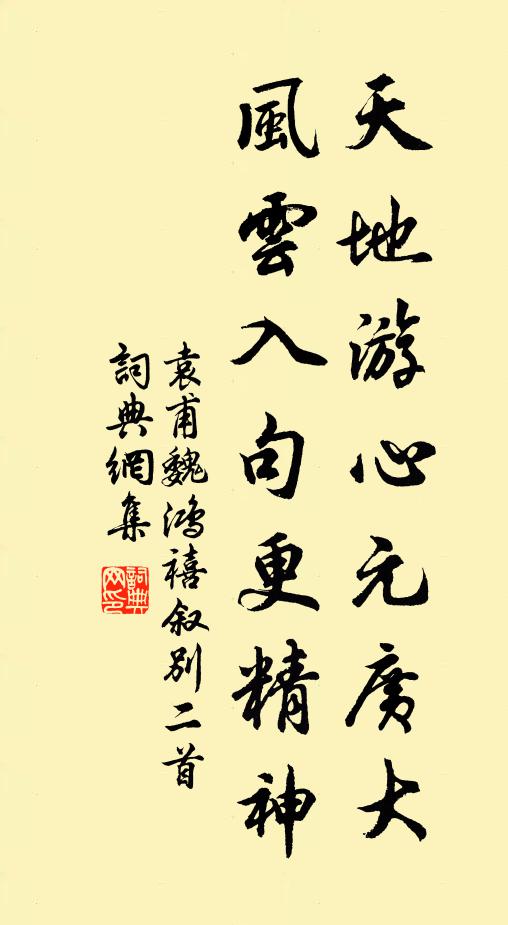 天地游心元廣大
風雲入句更精神
袁甫魏鴻禧叙别二首
詞典網集
詞典網印